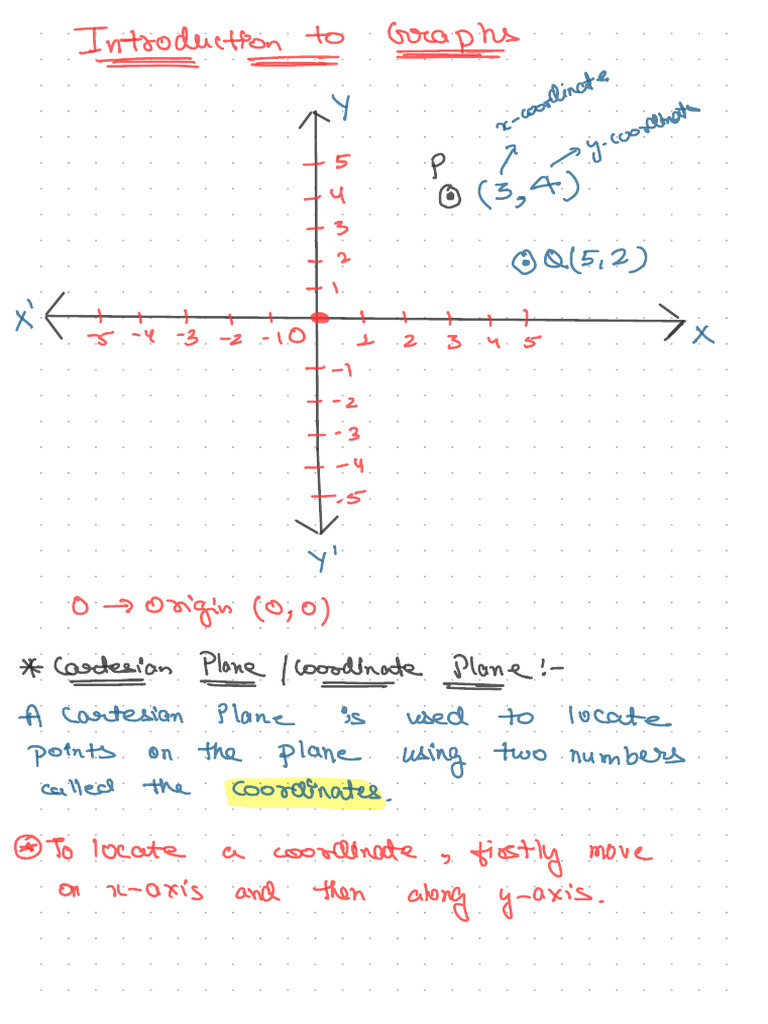 Introduction to Graphs
Y
x-coordinate
y-coordinate
P
(3,4)
Q(5,2)
5
4
3
2
1
X'
-5 -4 -3 -2 -1 0 1 2 3 4 5
X
-1
-2
-3
-4
-5
Y'
O → Origin (0,0)
* Cartesian Plane / Coordinate Plane :-
A Cartesian Plane is used to locate
points on the plane using two numbers
called the coordinates.
* To locate a coordinate, firstly move
on x-axis and then along y-axis.